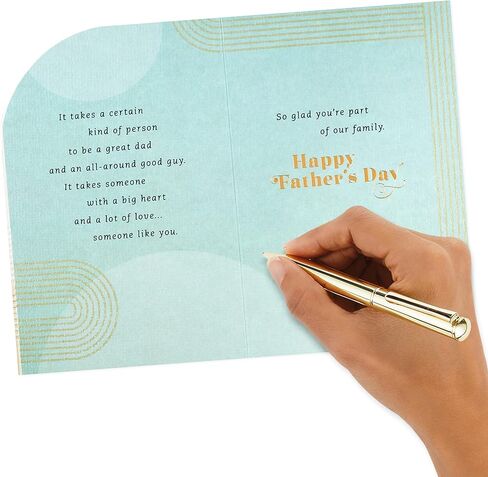 It takes a certain
kind of person
to be a great dad
and an all-around good guy.
It takes someone
with a big heart
and a lot of love...
someone like you.
So glad you're part
of our family.
Happy
Father's Day